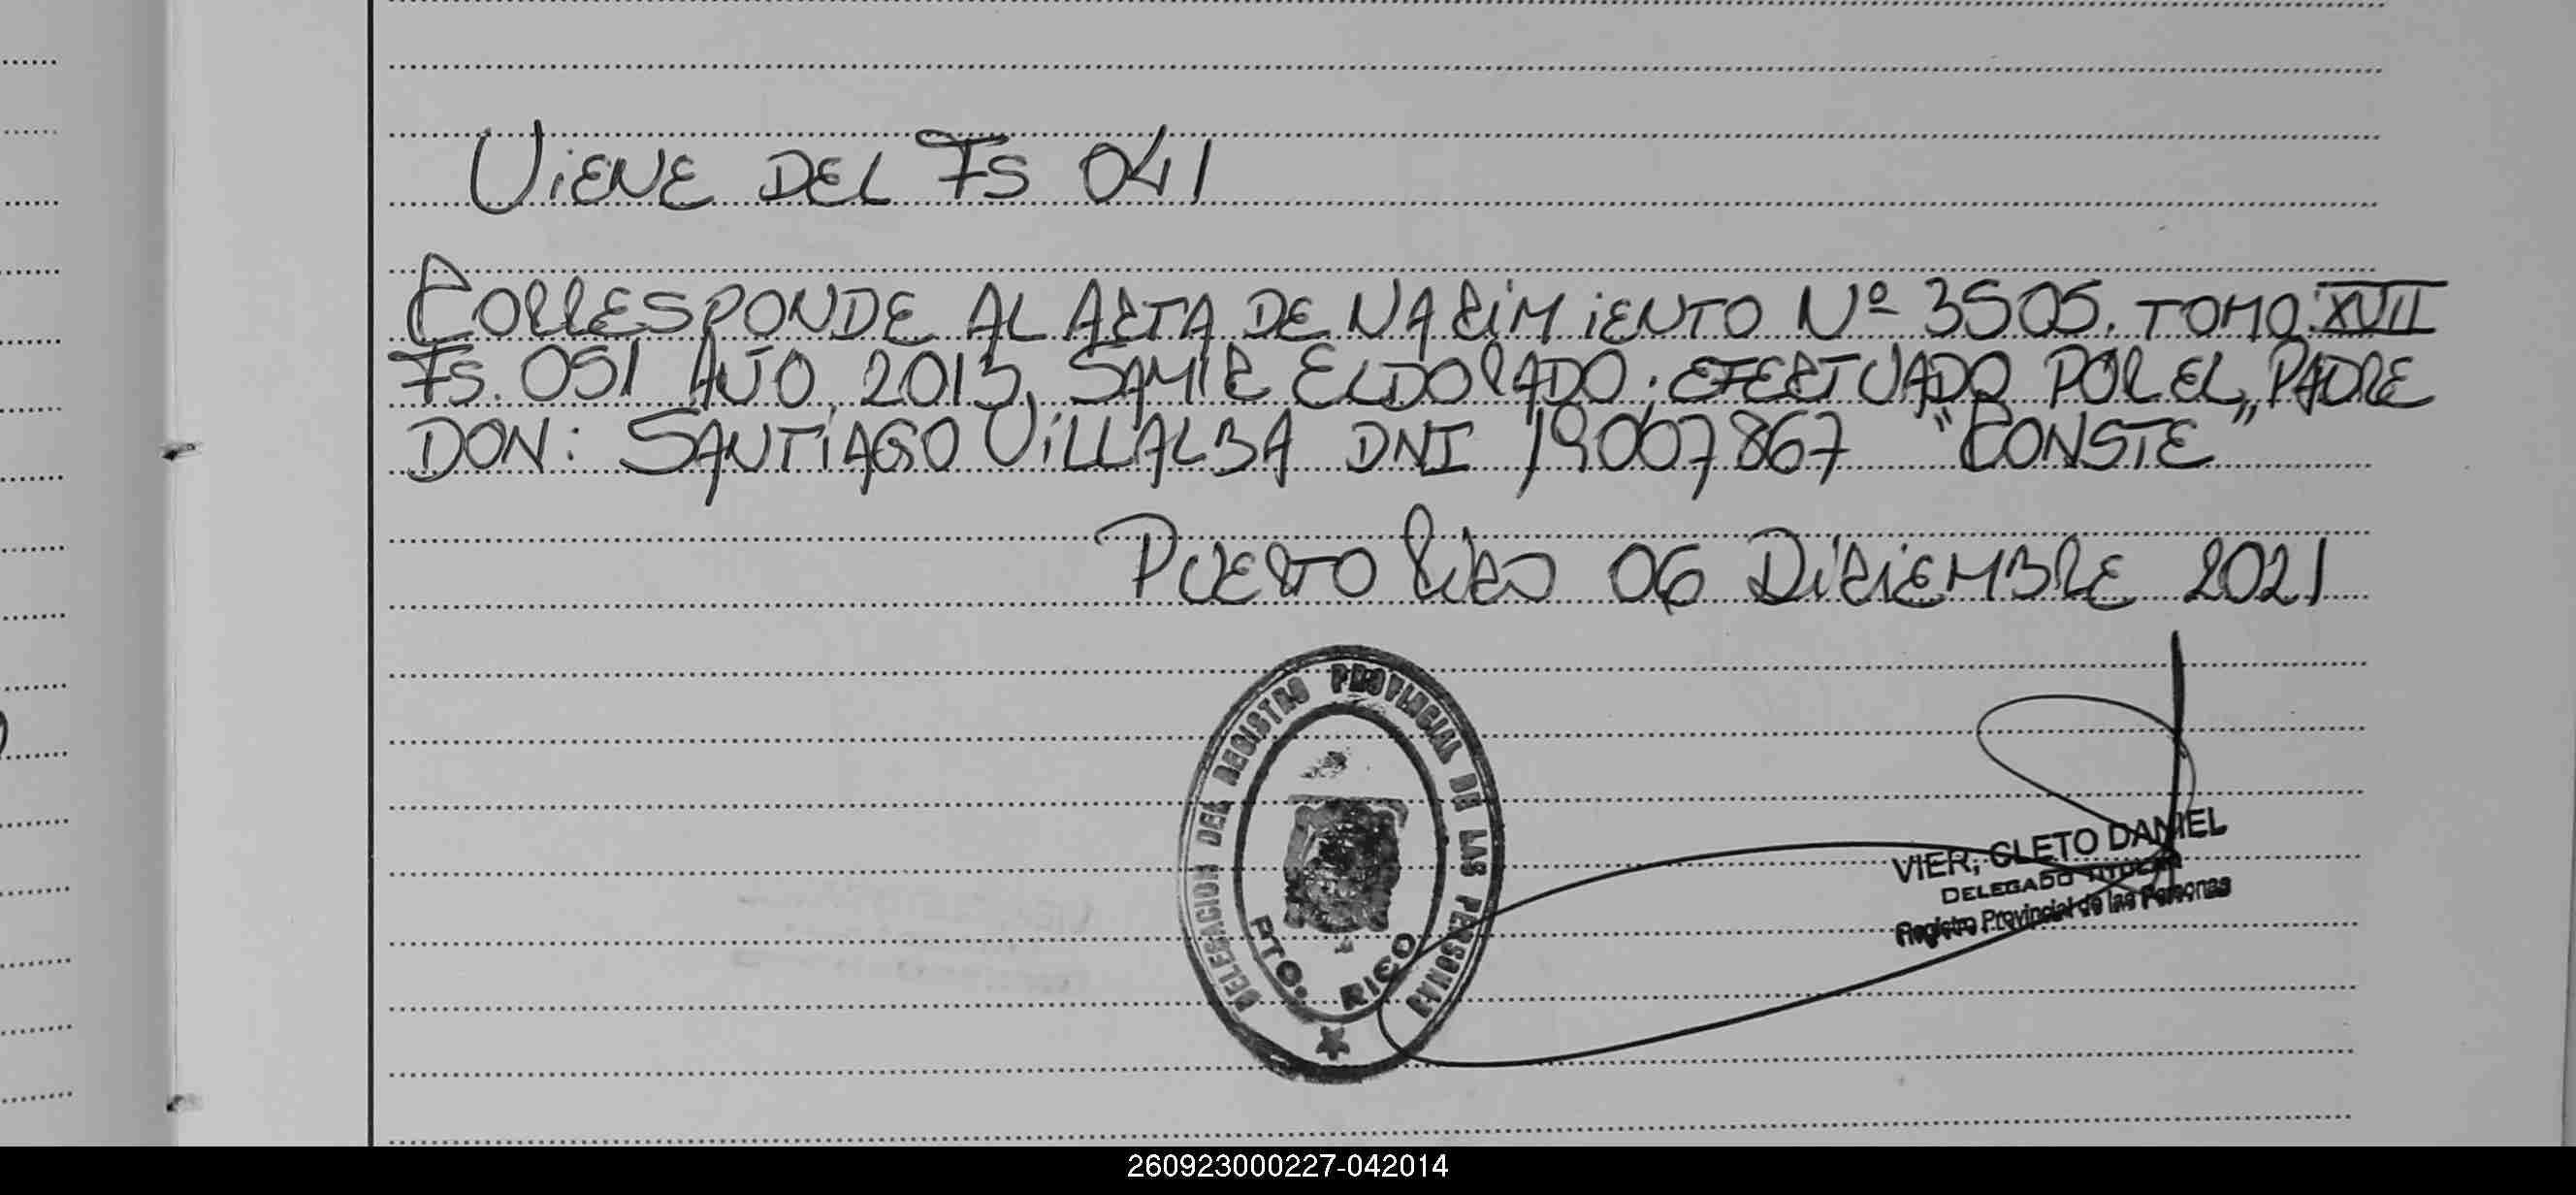 VIENE DEL FS 041
CORRESPONDE AL ACTA DE NACIMIENTO Nº 3505. TOMO XVII
FS. 051 AÑO 2013, SAMIC ELDORADO. EFECTUADO POR EL PADRE
DON: SANTIAGO VILLALBA DNI 19067867 "CONSTE"
PUERTO RICO 06 DICIEMBRE 2021
DELEGACION DEL REGISTRO PROVINCIAL DE LAS PERSONAS
PTO. RICO
VIER, CLETO DANIEL
DELEGADO TITULAR
Registro Provincial de las Personas
260923000227-042014